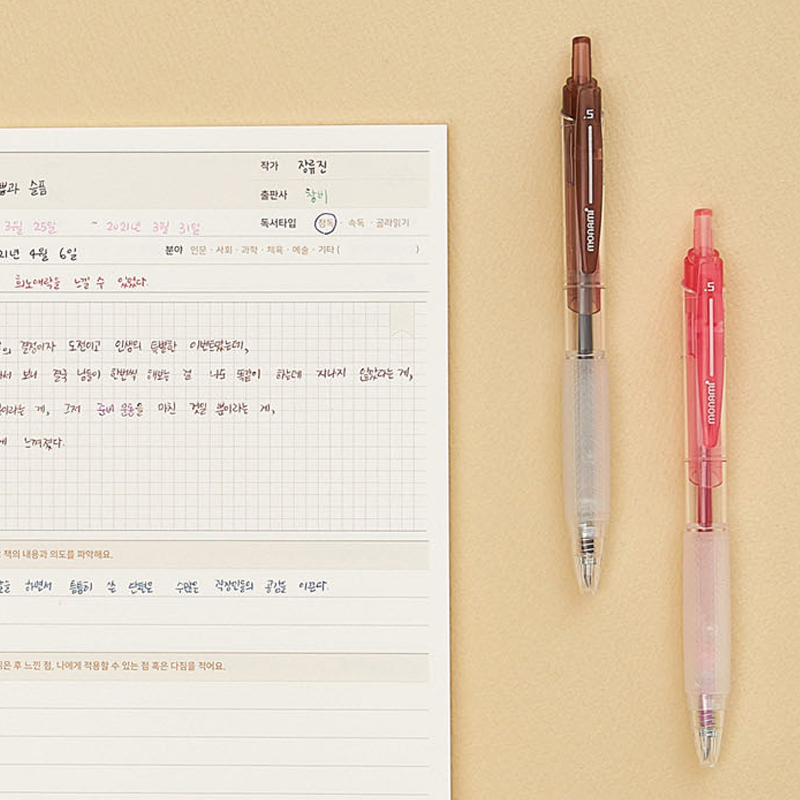 작가 장류진
쁨과 슬픔
출판사 창비
3월 25일 ~ 2021년 3월 31일 독서타입 정독 · 속독 · 골라읽기
21년 4월 6일 분야 인문 · 사회 · 과학 · 체육 · 예술 · 기타 ( )
희노애락을 느낄 수 있었다.
의 결정이자 도전이고 인생의 특별한 이벤트였는데,
서 보니 결국 남들이 한번씩 해보는 걸 나도 똑같이 하는데 지나지 않았다는 게,
이라는 게, 그저 준비 운동을 마친 것일 뿐이라는 게,
게 느껴졌다.
책의 내용과 의도를 파악해요.
하면서 틈틈히 쓴 단편은 수많은 직장인들의 공감을 이끈다.
읽은 후 느낀 점, 나에게 적용할 수 있는 점 혹은 다짐을 적어요.
.5
monami
.5
monami